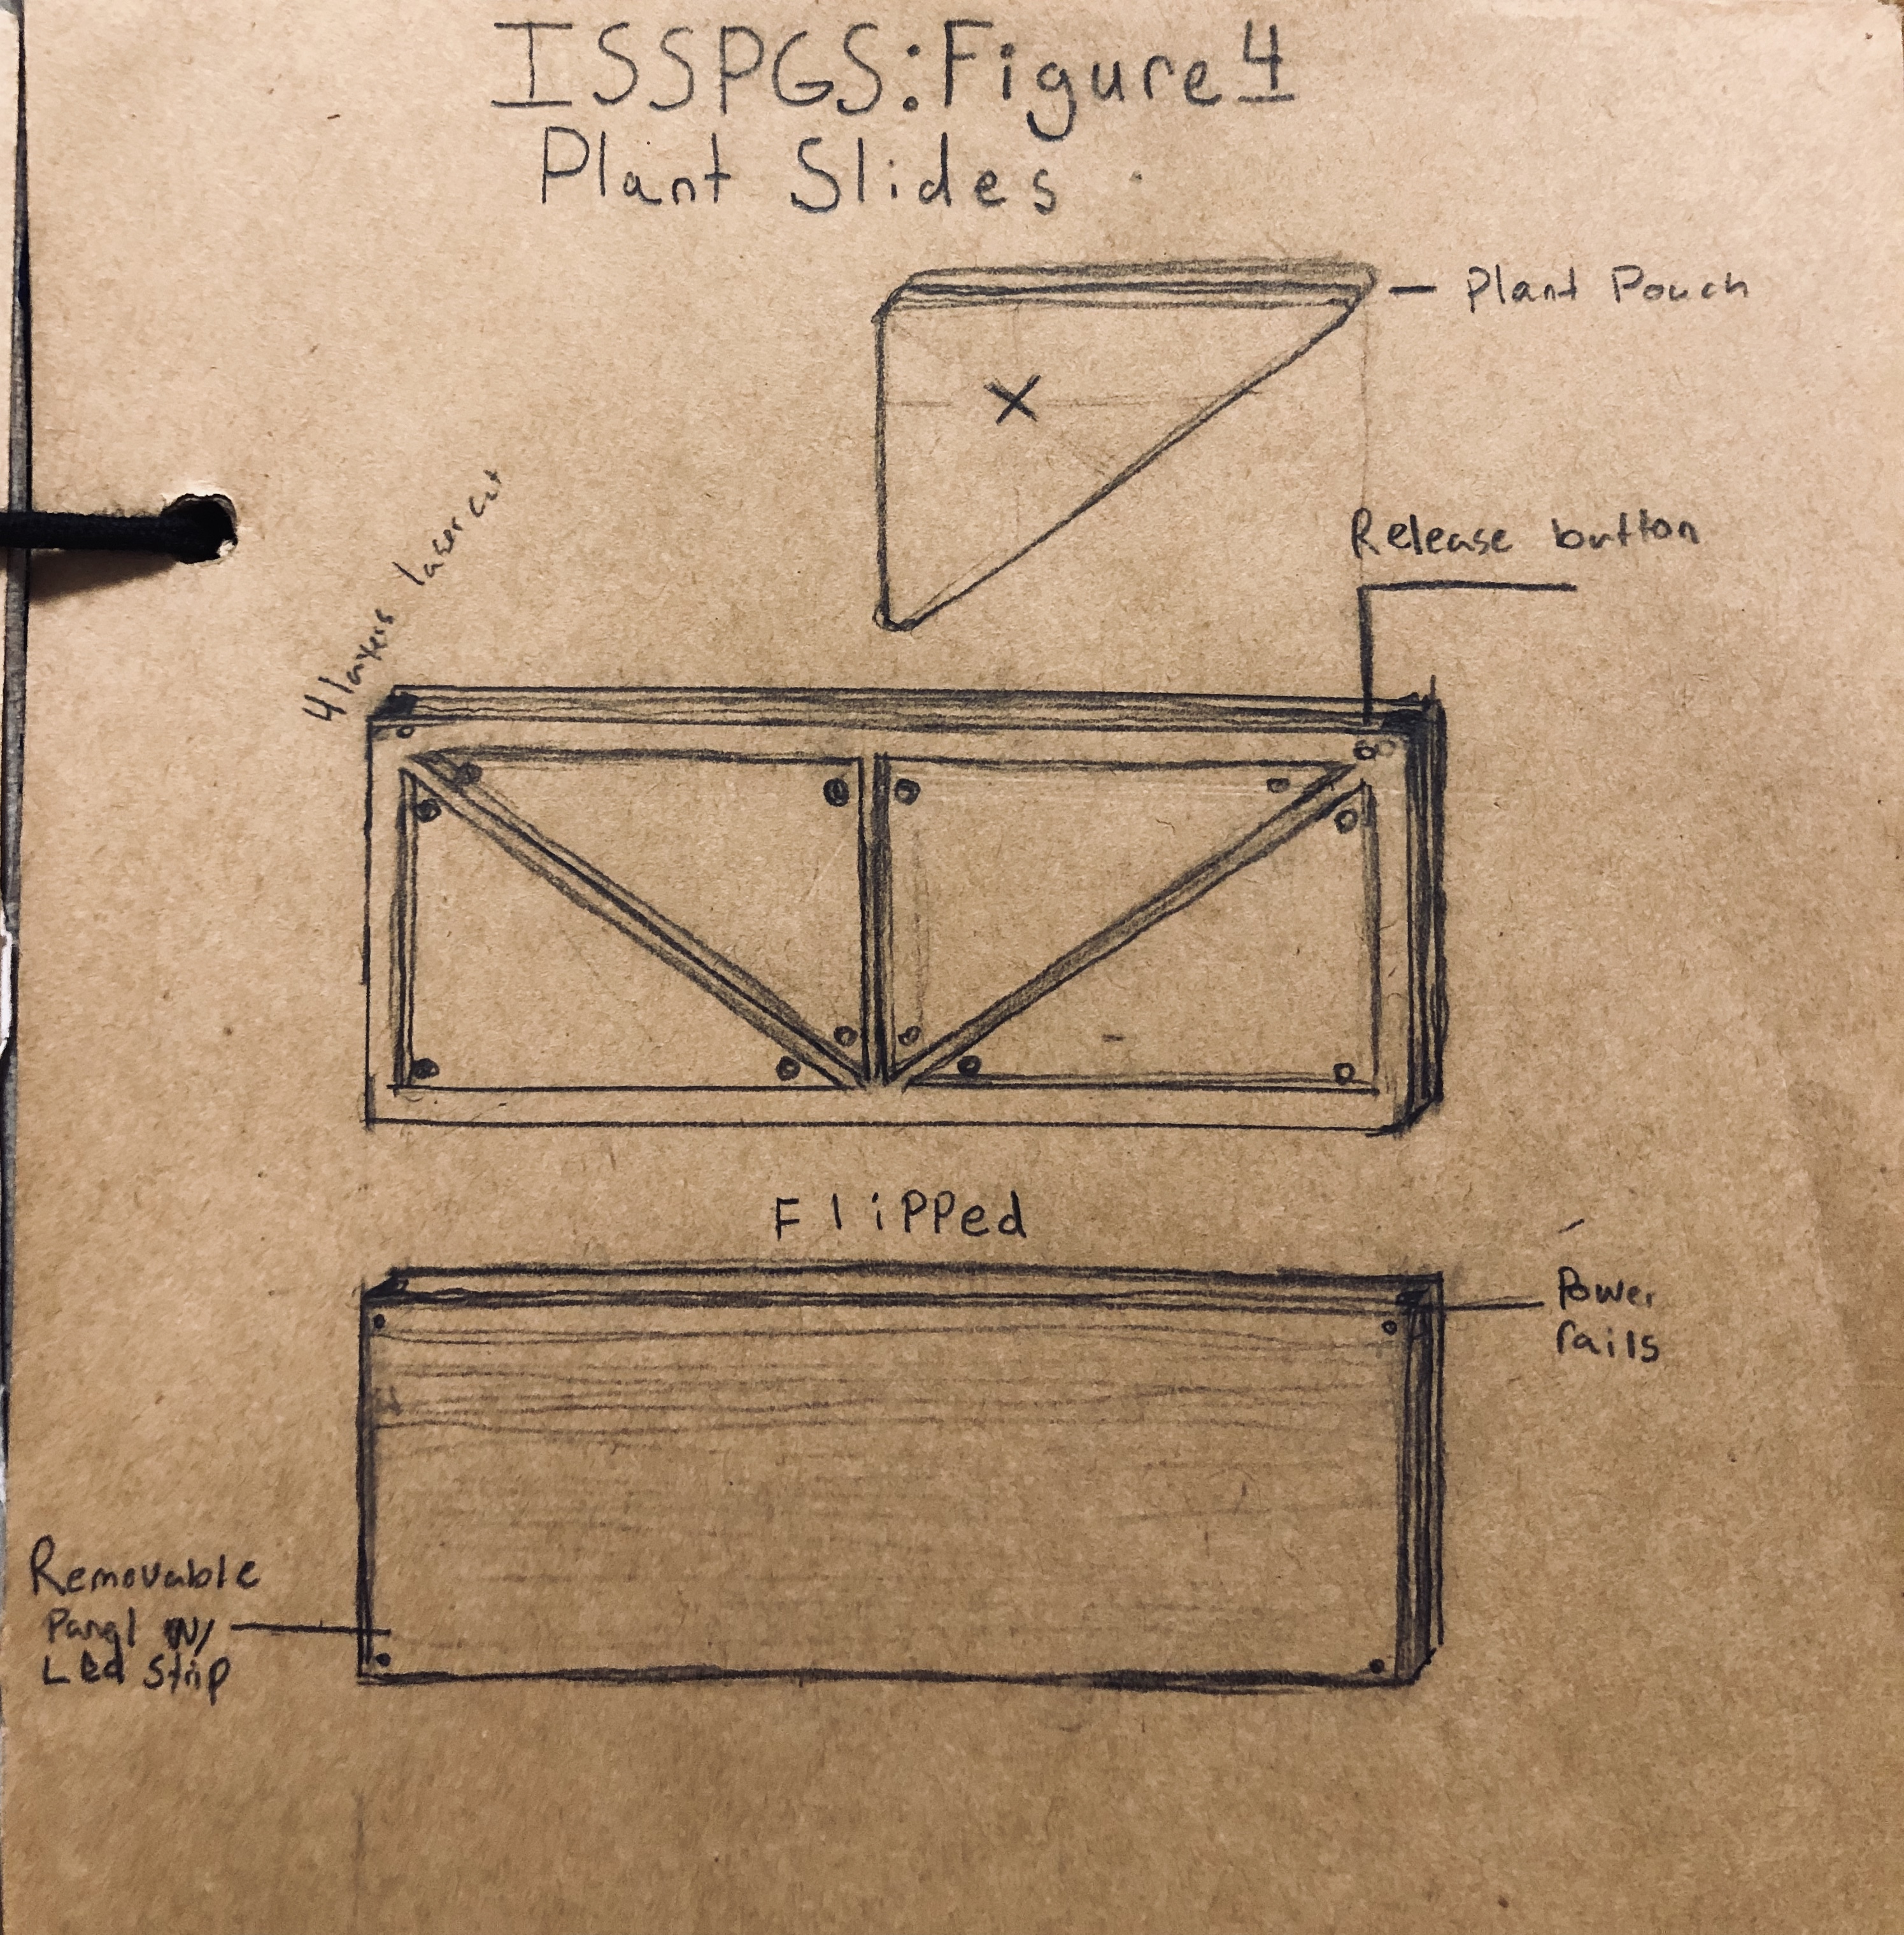 ISSPGS:Figure 4
Plant Slides
Plant Pouch
X
4 layers laser cut
Release button
Flipped
Power
rails
Removable
Panel W/
Led Strip